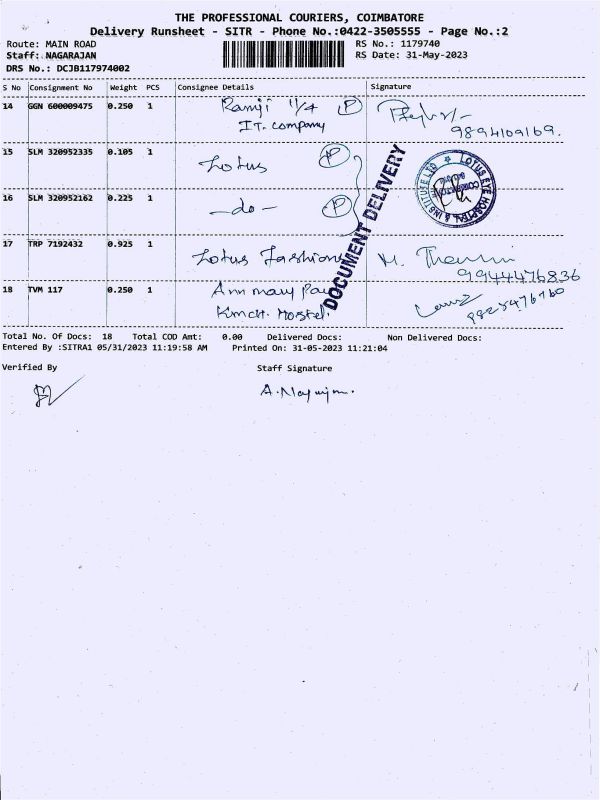 THE PROFESSIONAL COURIERS, COIMBATORE
Delivery Runsheet - SITR - Phone No.:0422-3505555 - Page No.:2
Route: MAIN ROAD RS No.: 1179740
Staff: NAGARAJAN RS Date: 31-May-2023
DRS No.: DCJB117974002
S No Consignment No Weight PCS Consignee Details Signature
14 GGN 600009475 0.250 1 Ramji 11/4 P
IT. company 9894109169.
15 SLM 320952335 0.105 1 Lotus P
16 SLM 320952162 0.225 1 -do- P
LOTUS EYE HOSPITAL & INSTITUTE LTD
DOCUMENT DELIVERY
17 TRP 7192432 0.925 1 Lotus Fashions M.
9944476836
18 TVM 117 0.250 1 Ann mary
KMCH. Hostel.
Total No. Of Docs: 18 Total COD Amt: 0.00 Delivered Docs: Non Delivered Docs:
Entered By :SITRA1 05/31/2023 11:19:58 AM Printed On: 31-05-2023 11:21:04
Verified By Staff Signature